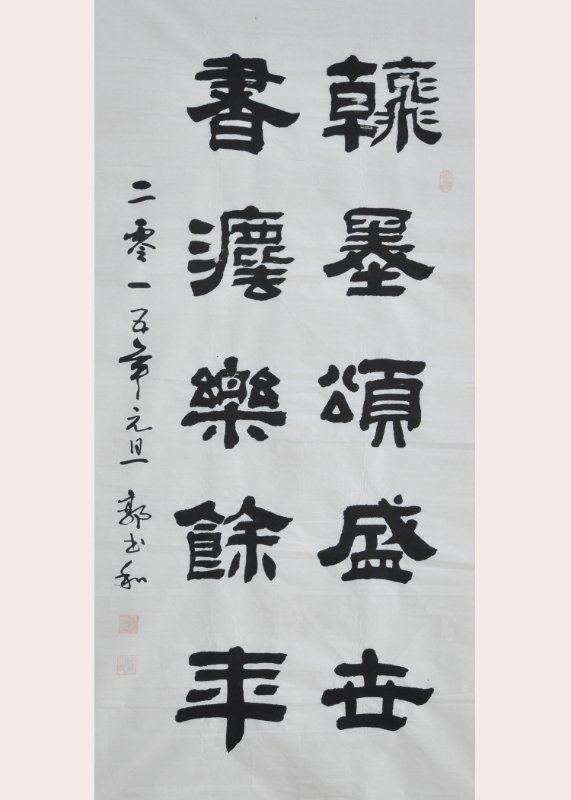 翰墨頌盛世
書灋樂餘年
二零一五年元旦 郭书和